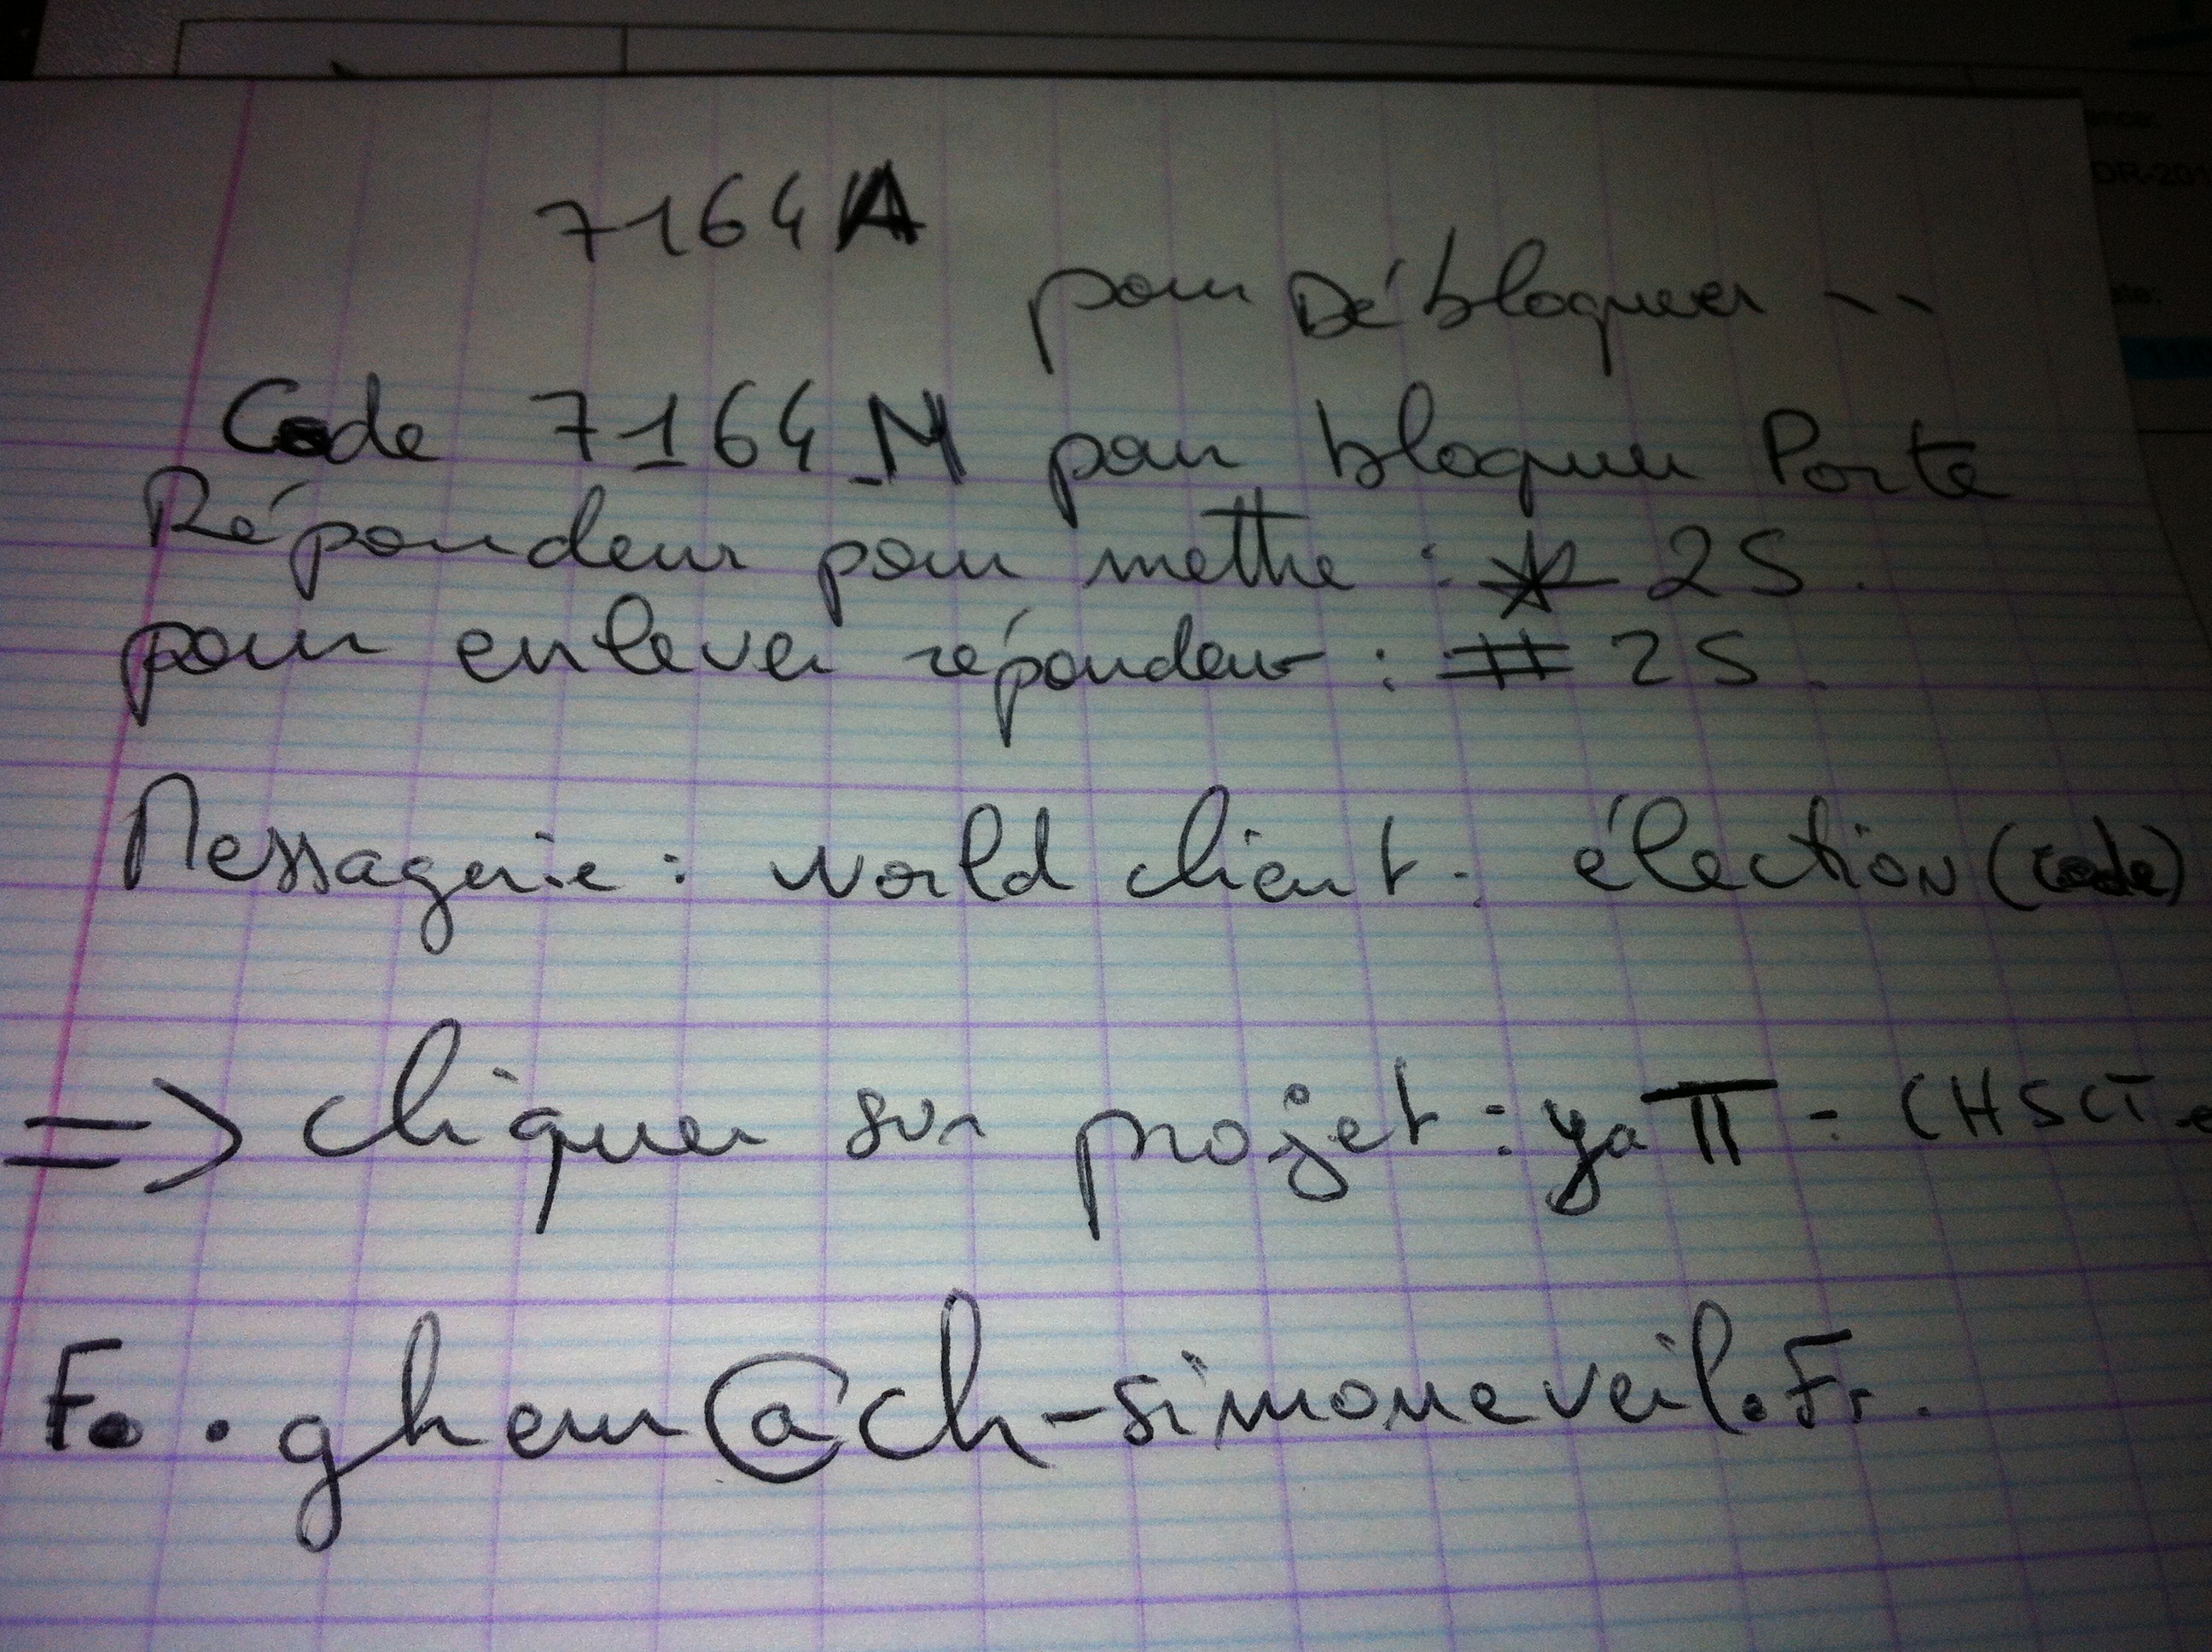 7164A
pour Débloquer --
Code 7164 M pour bloquer Porte
Répondeur pour mettre : * 25.
pour enlever répondeur : # 25.
Messagerie : world client. élection (code)
=> cliquer sur projet : ya π = CHSCT
F. . ghem@ch-simoneveil.Fr.
DR-201